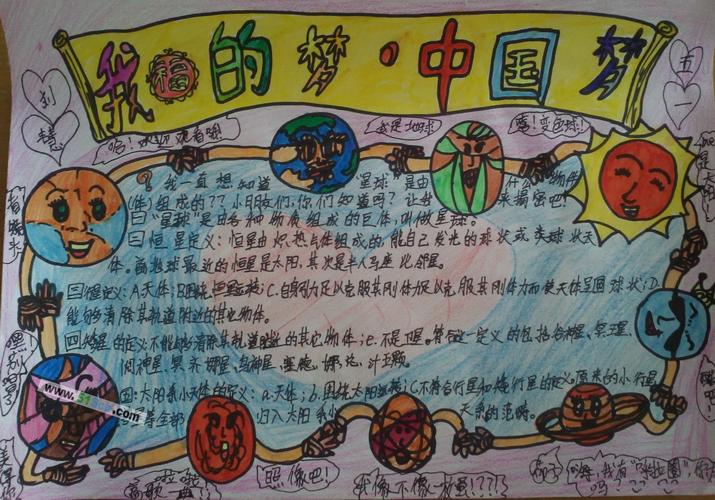 我的梦·中国梦
刘
慧
五
一
哈!欢迎观看哦!
我是地球
嘿!变色球!
?我一直想知道 星球 是由 什么 物体
(体)组成的??小朋友们,你们知道吗?让我 来揭密吧!
一"星球"是由各种物质组成的巨体,叫做星球。
二恒星定义:恒星由炽热气体组成的,能自己发光的球状或类球状天
体。离地球最近的恒星是太阳,其次是半人马座比邻星。
三行星定义:A.天体;B.围绕恒星运转;C.自身引力足以克服其刚体力足以克服其刚体力而使天体呈圆球状;D.
能够清除其轨道附近的其它物体。
四矮星的定义不能够清除其轨道附近的其它物体;e.不是卫星。符合这一定义的包括谷神星、冥王星、
阋神星、
五:太阳系小天体的定义:a.天体;b.围绕太阳运转;C不符合行星和矮行星的定义。原来的小行星、
等全部 归入太阳系小 天系的范畴。
嘿!别唱了
高歌一曲
照像吧!
我像不像一枚蛋!??!
www.51 .com